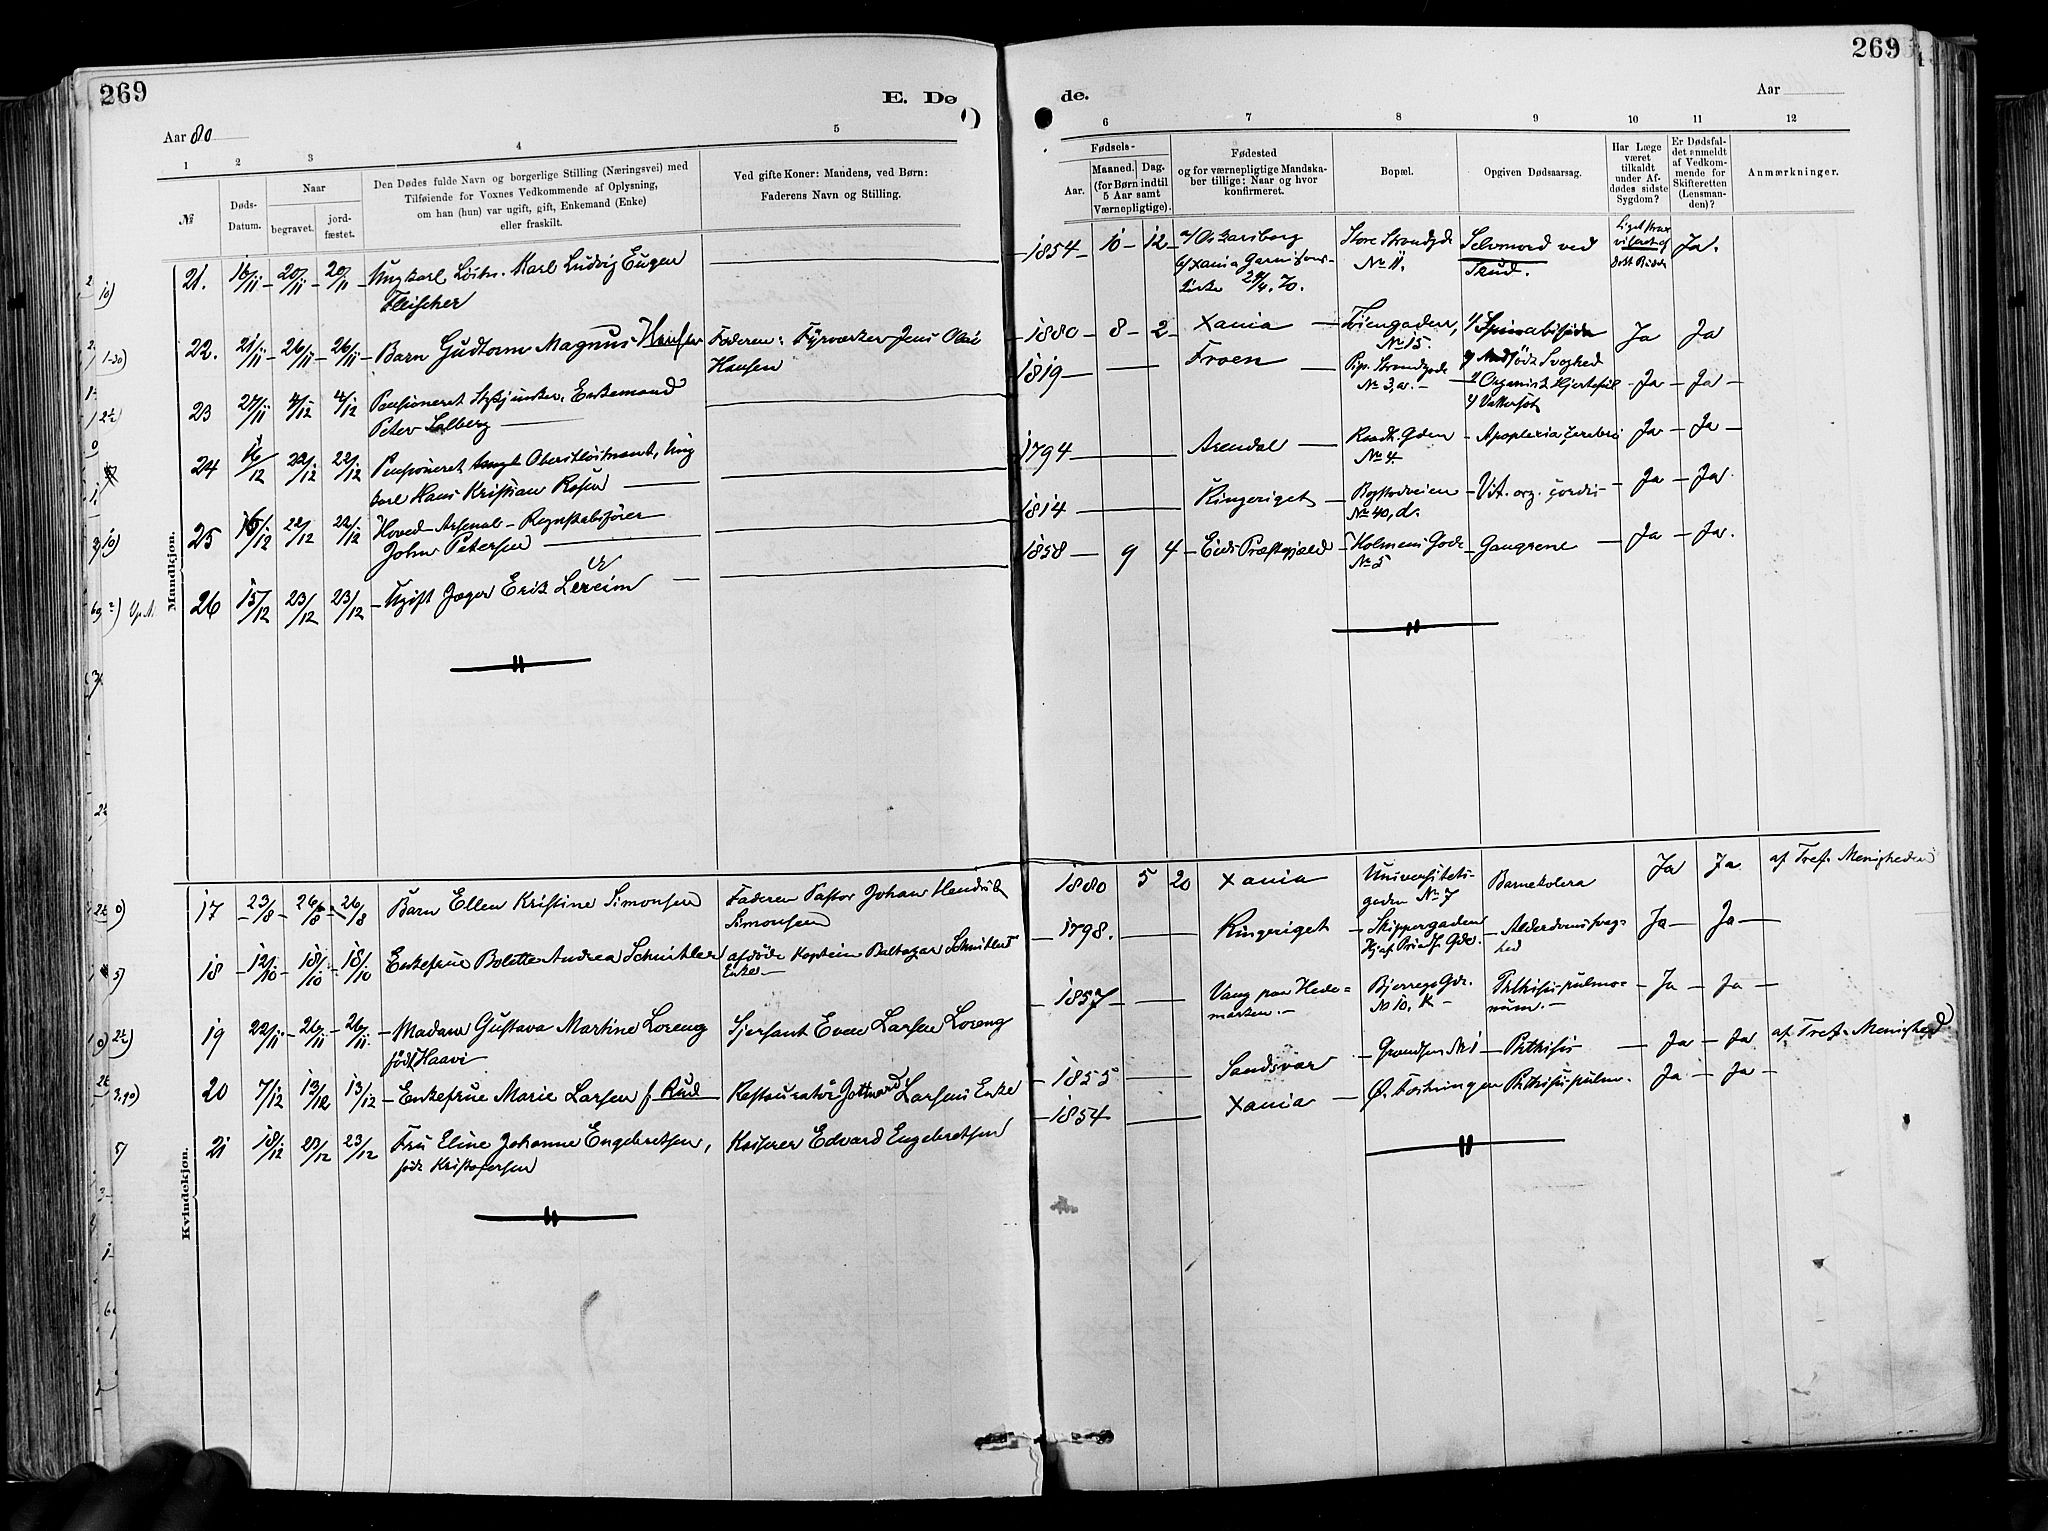 269
E. Dø
Aar 80
1 2 3 4 5
№
Døds-
Datum.
Naar
begravet.
jord-
fæstet.
Den Dødes fulde Navn og borgerlige Stilling (Næringsvei) med
Tilføiende for Voxnes Vedkommende af Oplysning,
om han (hun) var ugift, gift, Enkemand (Enke)
eller fraskilt.
Ved gifte Koner: Mandens, ved Børn:
Faderens Navn og Stilling.
Mandkjøn.
21. 16/11 20/11 20/11 Ungkarl Løitn. Karl Ludvig Eugen
Fleischer
22. 21/11 26/11 26/11 Barn Gudtorm Magnus Hansen Faderen: Fyrværker Jens Olai
Hansen
23 27/11 4/12 4/12 Pensioneret Enkemand
Peter Solberg
24 16/12 22/12 22/12 Pensioneret Oberstløitnant, Ung
karl Hans Kristian Rosen
25 16/12 22/12 22/12 Hoved-Arsenal-Regnskabsfører
John Petersen
26 15/12 23/12 23/12 Ugift Jæger Erik Lereim
Kvindekjøn.
17 23/8 26/8 26/8 Barn Ellen Kristine Simonsen Faderen Pastor Johan Hendrik
Simonsen
18 12/10 18/10 18/10 Enkefrue Bolette Andrea Schnitler afdøde Kaptein Baltazar Schnitlers
Enke
19 22/11 26/11 26/11 Madam Gustava Martine Loreng Sjersant Even Larsen Loreng
født Haavi
20 7/12 13/12 13/12 Enkefrue Marie Larsen f. Rud Restauratør Gottward Larsens Enke
21 18/12 23/12 23/12 Fru Eline Johanne Engebretsen, Edvard Engebretsen
født Kristofersen
269
de.
Aar
6 7 8 9 10 11 12
Fødsels-
Aar.
Maaned.
Dag.
(for Børn indtil
5 Aar samt
Værnepligtige).
Fødested
og for værnepligtige Mandska-
ber tillige: Naar og hvor
konfirmeret.
Bopæl.
Opgiven Dødsaarsag.
Har Læge
været
tilkaldt
under Af-
dødes sidste
Sygdom?
Er Dødsfal-
det anmeldt
af Vedkom-
mende for
Skifteretten
(Lensman-
den)?
Anmærkninger.
1854 10 12 a/ Oskarsborg Store Strandgde Selvmord ved Ja.
b/ Xania Garnisons- № 11. Skud.
kirke 24/4. 70.
1880 8 2 Xania Fjerdingen, 1/ Spinabifida Ja Ja
№ 15. 2/ Medfødt Svaghed
1819 Froen Pip. Strandgade 1/ Organisk Hjertefeil Ja Ja
№ 3, a. 2/ Vattersot
1794 Arendal Raadh. Gden Apoplexia cerebri Ja Ja
№ 4.
1814 Ringeriget Bogstadveien Vit. org. cordis Ja Ja
№ 40, d.
1858 9 4 Eids Præstegjæld Holmens Gade Gangrene Ja Ja.
№ 5
1880 5 20 Xania Universitets- Barnekolera Ja Ja af Tref. Menigheden
gaden № 7
1798. Ringeriget Skippergaden Alderdomssvag- Ja Ja
hed
1857 Vang paa Hede- Bjerregde. Phthisis pulmo- Ja Ja
marken. № 10, K num.
1855 Sandsvær Grændsen № 1 Phthisis Ja Ja af Tref. Menighed
1854 Xania Ø. Fæstningen Phthisis pulm. Ja Ja